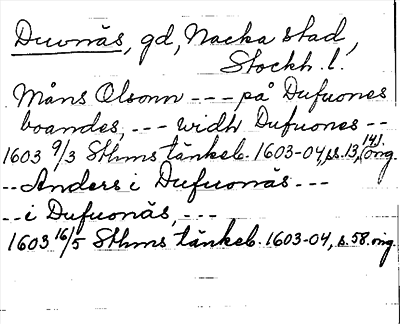 Duvnäs, gd, Nacka stad,
Stockh. l.
Måns Olsonn --- på Dufuones
boandes, --- widh Dufuones --
1603 9/3 Sthms tänkeb. 1603-04, ss. 13, 141. orig.
-- Anders i Dufuonäs ---
-- i Dufuonäs, ---
1603 16/5 Sthms tänkeb. 1603-04, s. 58. orig.